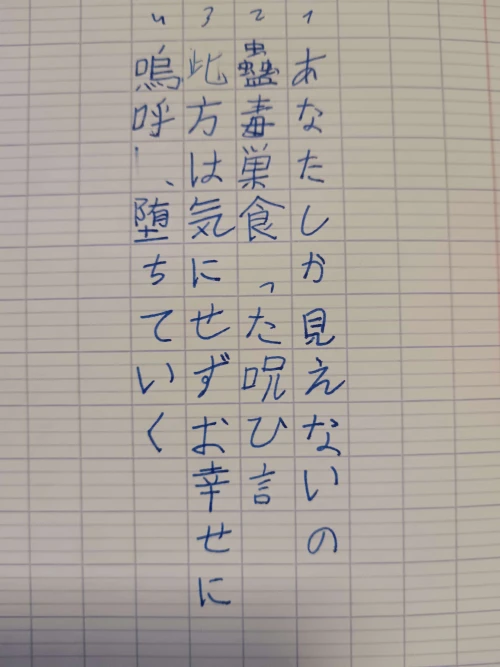 1
あなたしか見えないの
2
蠱毒巣食った呪ひ言
3
此方は気にせずお幸せに
4
嗚呼、堕ちていく